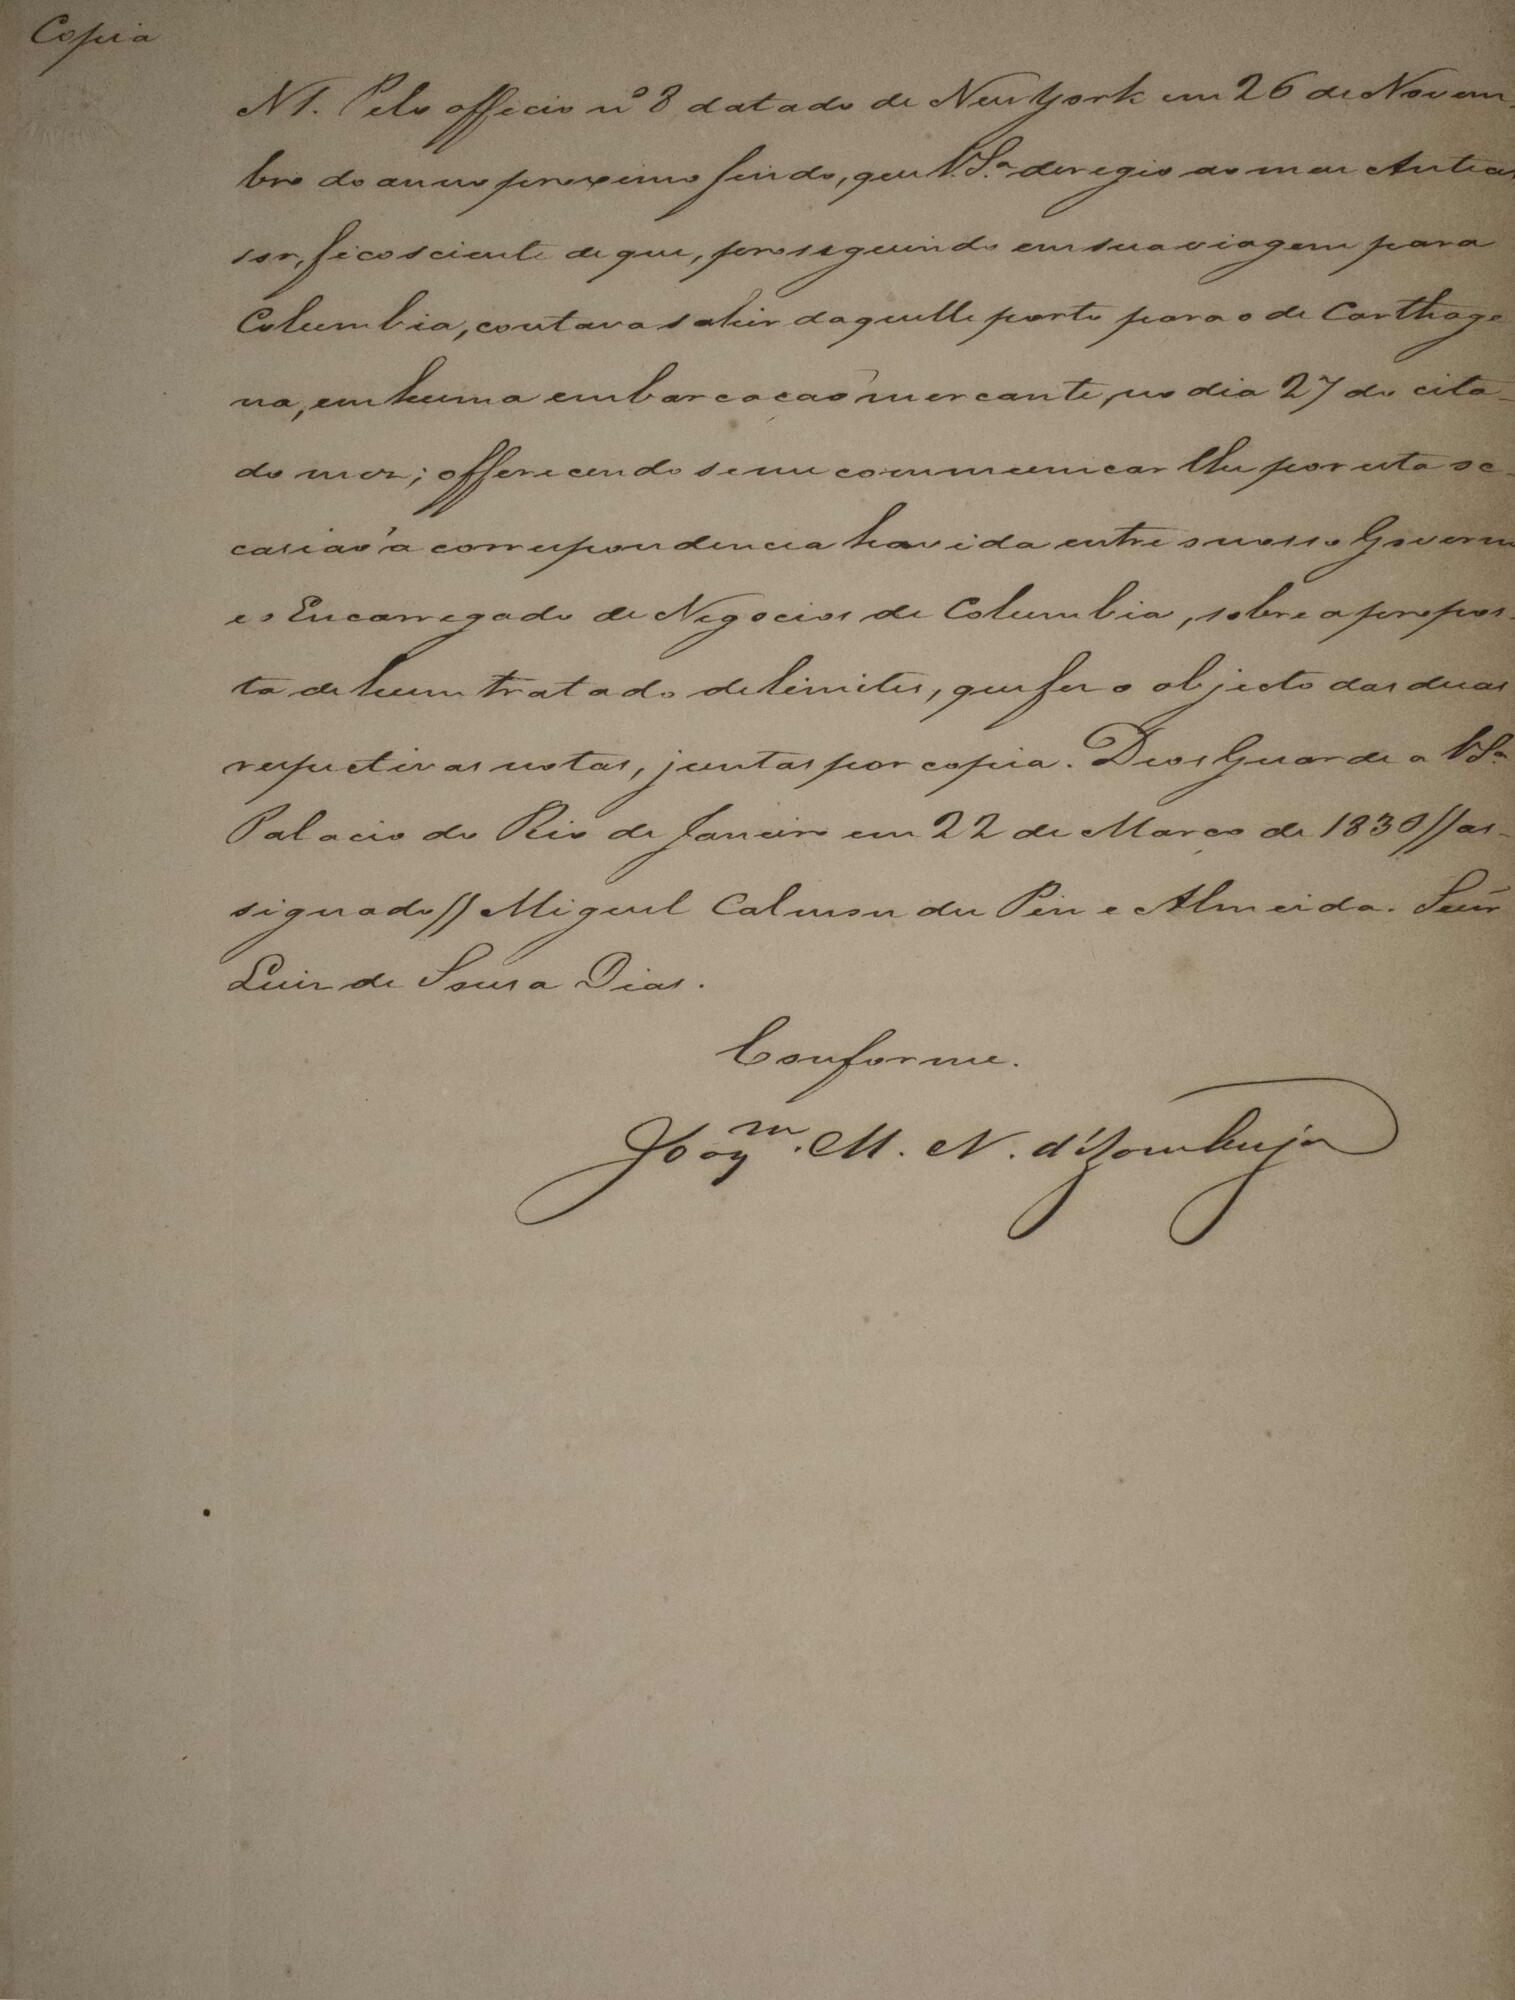 Copia
N1. Pelo officio nº 8 datado de New York em 26 de Novem-
bro do anno proximo findo, que V.Sª derigio ao meu Anteces
sor, fico sciente de que, proseguindo em sua viagem para
Columbia, contava sahir daquelle porto para o de Carthage
na, em huma embarcacaõ mercante, no dia 27 do cita-
do mez; offerecendo se me communicar lhe por esta oc-
casiaõ a correspondencia havida entre o nosso Governo
e o Encarregado de Negocios de Columbia, sobre a propos-
ta de hum tratado de limites, que fez o objecto das duas
respectivas notas, juntas por copia. Deos Guarde a V.Sª
Palacio do Rio de Janeiro em 22 de Março de 1830 // as-
signado // Miguel Calmon du Pin e Almeida. Senr
Luiz de Sousa Dias.
Conforme.
Joaqm. M. N. d'Azambuja